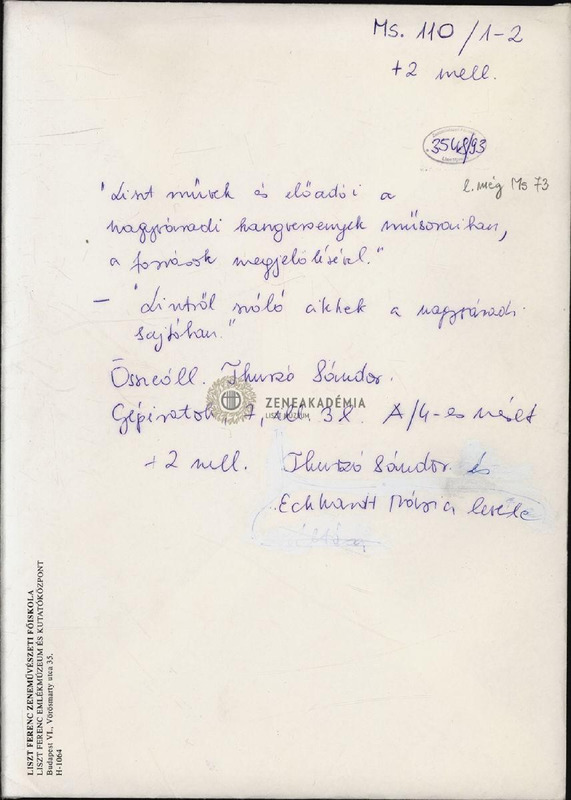 Ms. 110/1-2
+2 mell.
3548/93
l. még Ms 73
"Liszt művek és előadói a
nagyváradi hangversenyek műsoraiban,
a források megjelölésével."
– "Lisztről szóló cikkek a nagyváradi
sajtóban."
Összeáll. Thurzó Sándor.
ZENEAKADÉMIA
LISZT MÚZEUM
Gépiratok 7, ill. 3 l. A/4-es méret
+2 mell. Thurzó Sándor és
Eckhardt Mária levele
LISZT FERENC ZENEMŰVÉSZETI FŐISKOLA
LISZT FERENC EMLÉKMÚZEUM ÉS KUTATÓKÖZPONT
Budapest VI., Vörösmarty utca 35.
H-1064